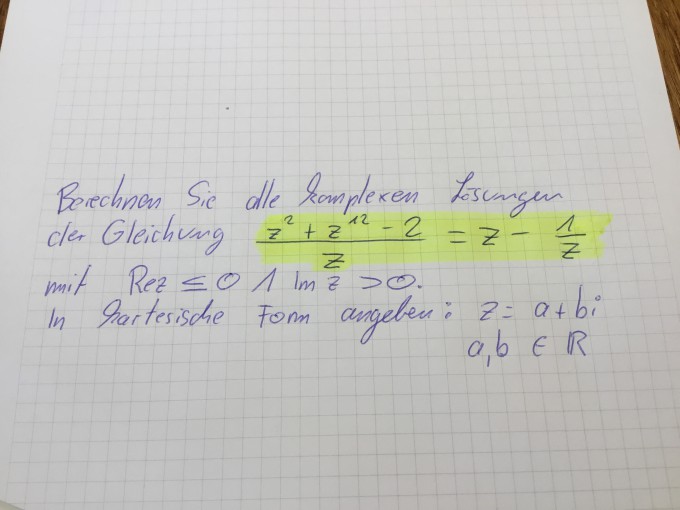 Berechnen Sie alle komplexen Lösungen
der Gleichung (z² + z¹² - 2)/z = z - 1/z
mit Re z ≤ 0 ∧ Im z > 0.
In kartesische Form angeben: z = a + bi
a, b ∈ ℝ